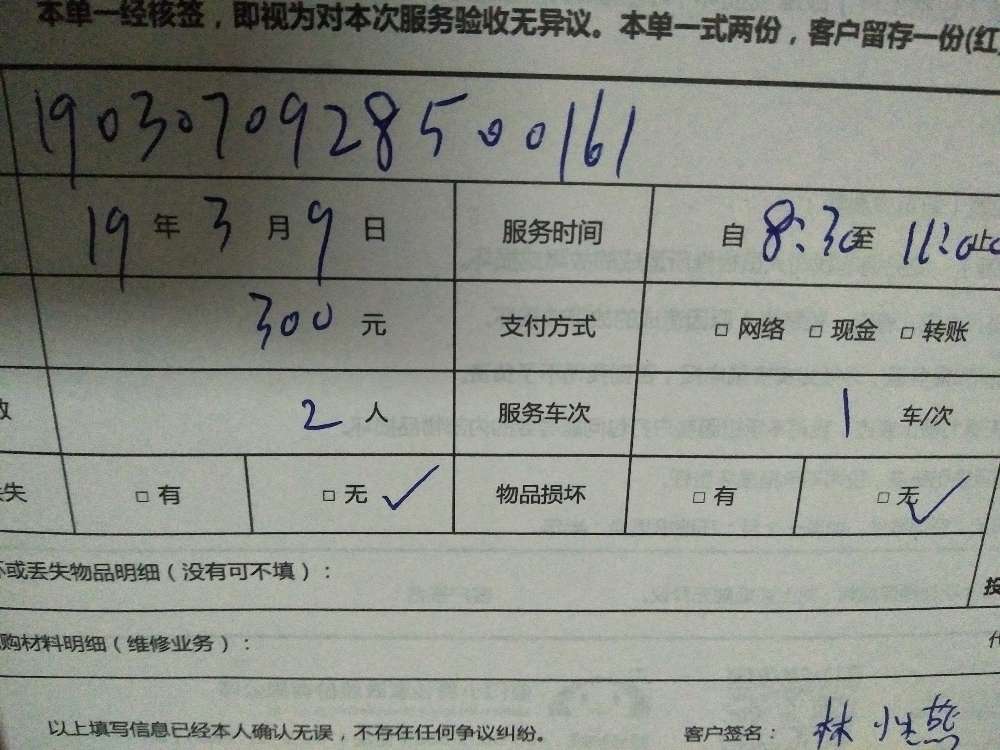 本单一经核签，即视为对本次服务验收无异议。本单一式两份，客户留存一份(红
1903070928500161
19 年 3 月 9 日 服务时间 自 8:30 至 11:20 止
300 元 支付方式 □ 网络 □ 现金 □ 转账
2 人 服务车次 1 车/次
失 □ 有 □ 无 ✓ 物品损坏 □ 有 □ 无 ✓
坏或丢失物品明细（没有可不填）：
购材料明细（维修业务）：
以上填写信息已经本人确认无误，不存在任何争议纠纷。 客户签名： 林